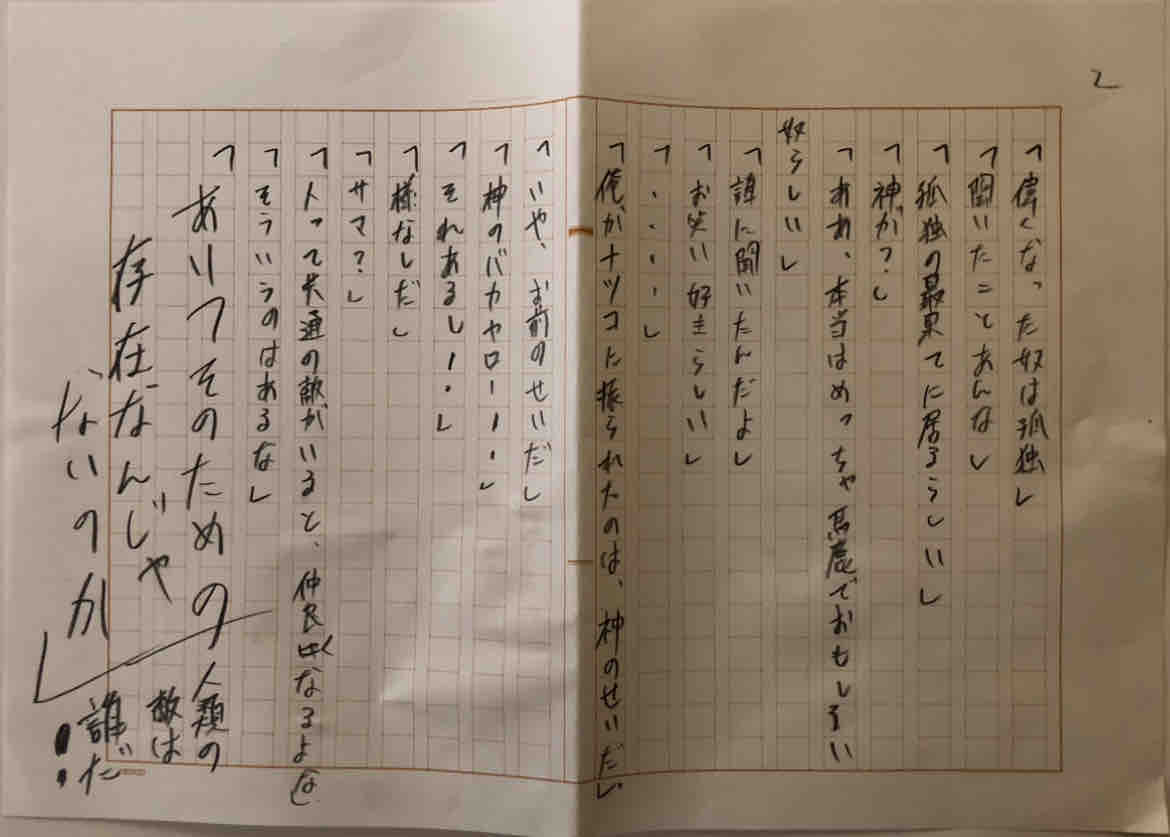 2
「偉くなった奴は孤独」
「聞いたことあんな」
「孤独の最果てに居るらしい」
「神が?」
「ああ、本当はめっちゃ馬鹿でおもしろい
奴らしい」
「誰に聞いたんだよ」
「お笑い好きらしい」
「・・・・」
「俺がナツコに振られたのは、神のせいだ」
「いや、お前のせいだ」
「神のバカヤロー!!」
「それある!!」
「様なしだ」
「サマ?」
「人って共通の敵がいると、仲良くなるよな」
「そういうのはあるな」
「あいつそのための人類の
敵は
誰だ
存在なんじゃ
ないのか」
!!